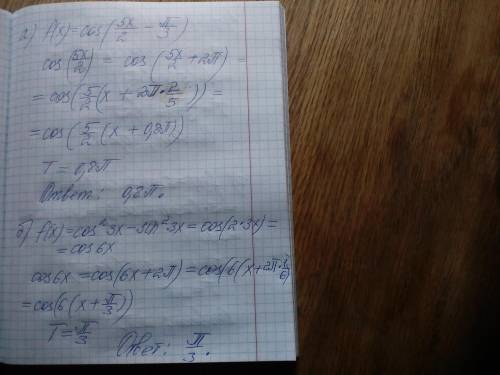 а) f(x)=cos(5x/2 - π/3)
cos(5x/2) = cos(5x/2 + 2π) =
= cos(5/2(x + 2π·2/5)) =
= cos(5/2(x + 0,8π))
T = 0,8π
Ответ: 0,8π.
б) f(x)=cos²3x - sin²3x = cos(2·3x) =
= cos6x
cos6x = cos(6x + 2π) = cos(6(x + 2π·1/6)
= cos(6(x + π/3))
T = π/3
Ответ: π/3.